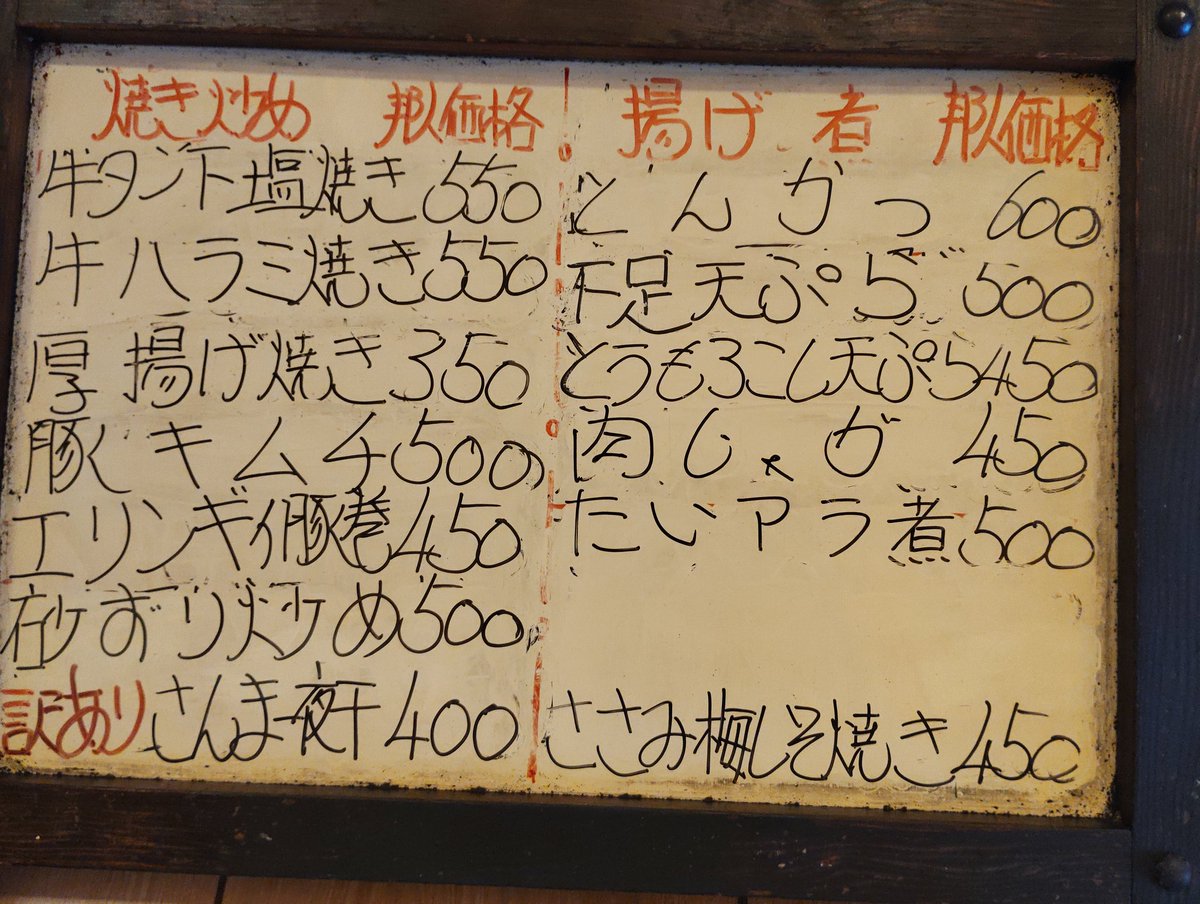 焼き炒め 邦人価格
牛タン下塩焼き 550
牛ハラミ焼き 550
厚揚げ焼き 350
豚キムチ 500
エリンギ豚巻 450
砂ずり炒め 500
訳あり さんま一夜干 400
揚げ 者 邦人価格
とんかつ 600
下足天ぷら 500
とうもろこし天ぷら 450
肉じゃが 450
たいアラ煮 500
ささみ梅しそ焼き 450